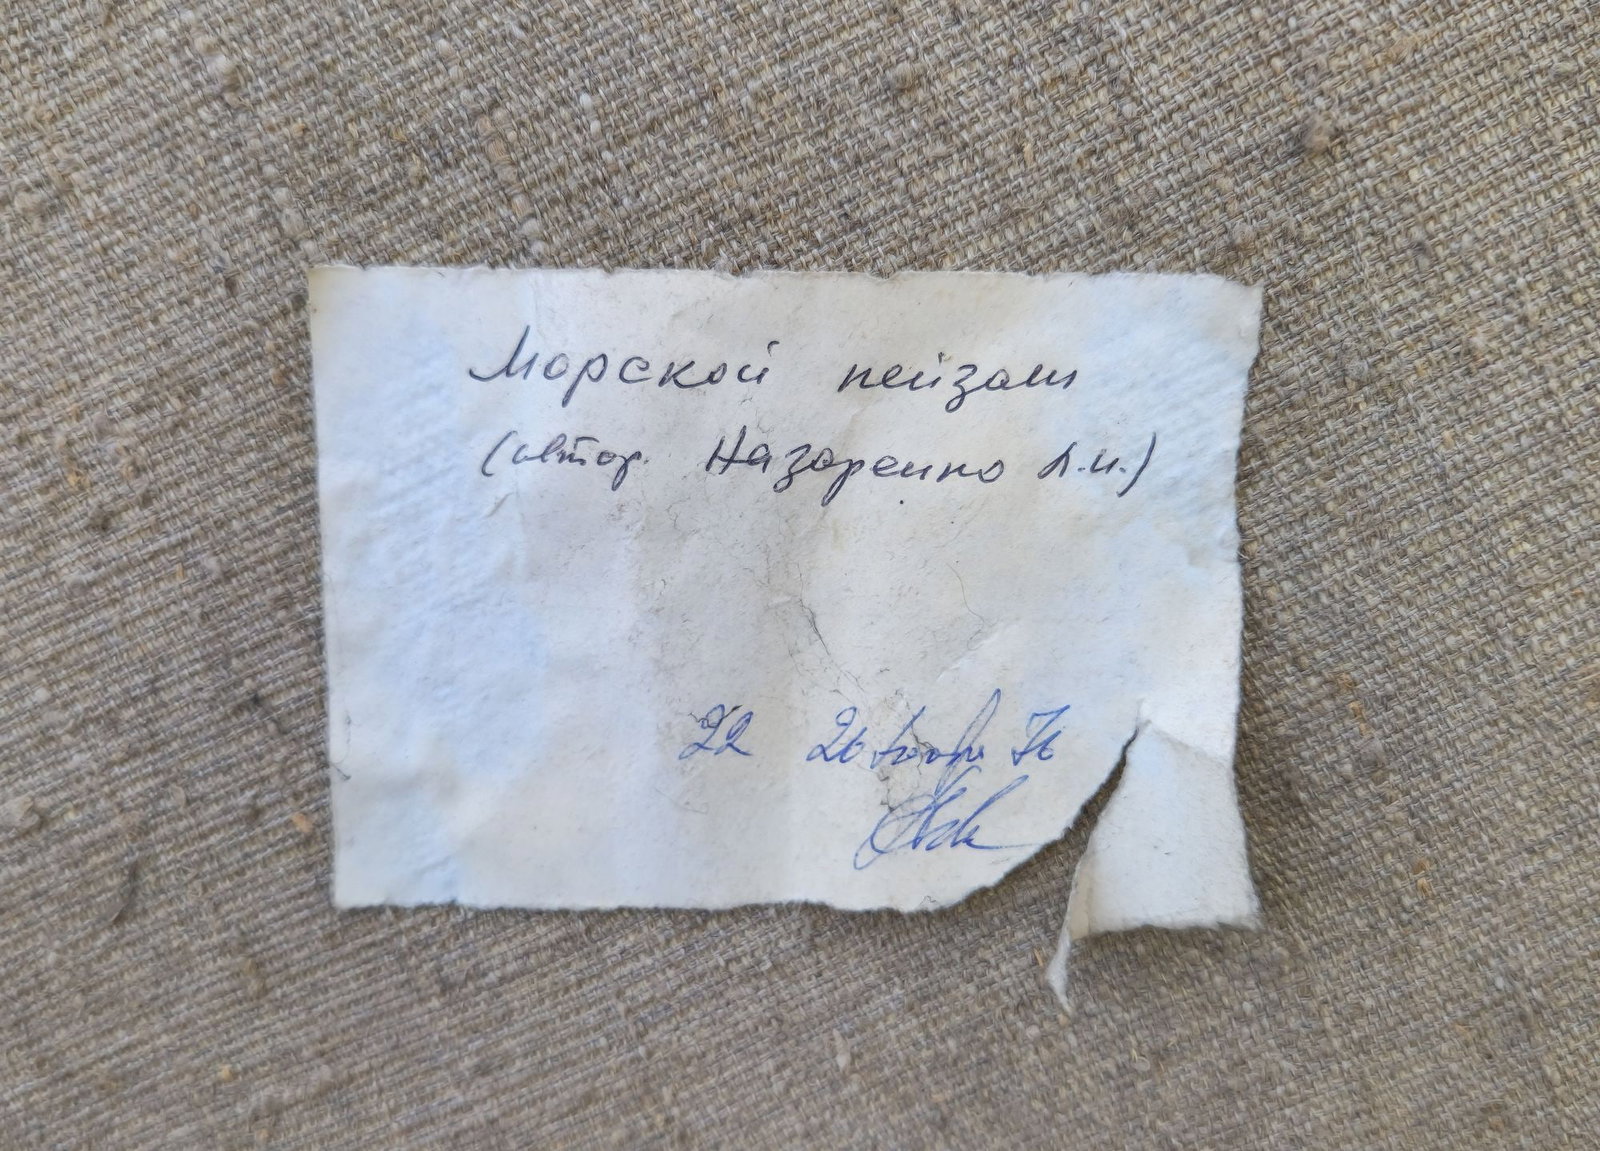 Морской пейзаж
(автор. Назаренко А.И.)
22 76